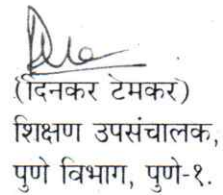 (दिनकर टेमकर)
शिक्षण उपसंचालक,
पुणे विभाग, पुणे-१.